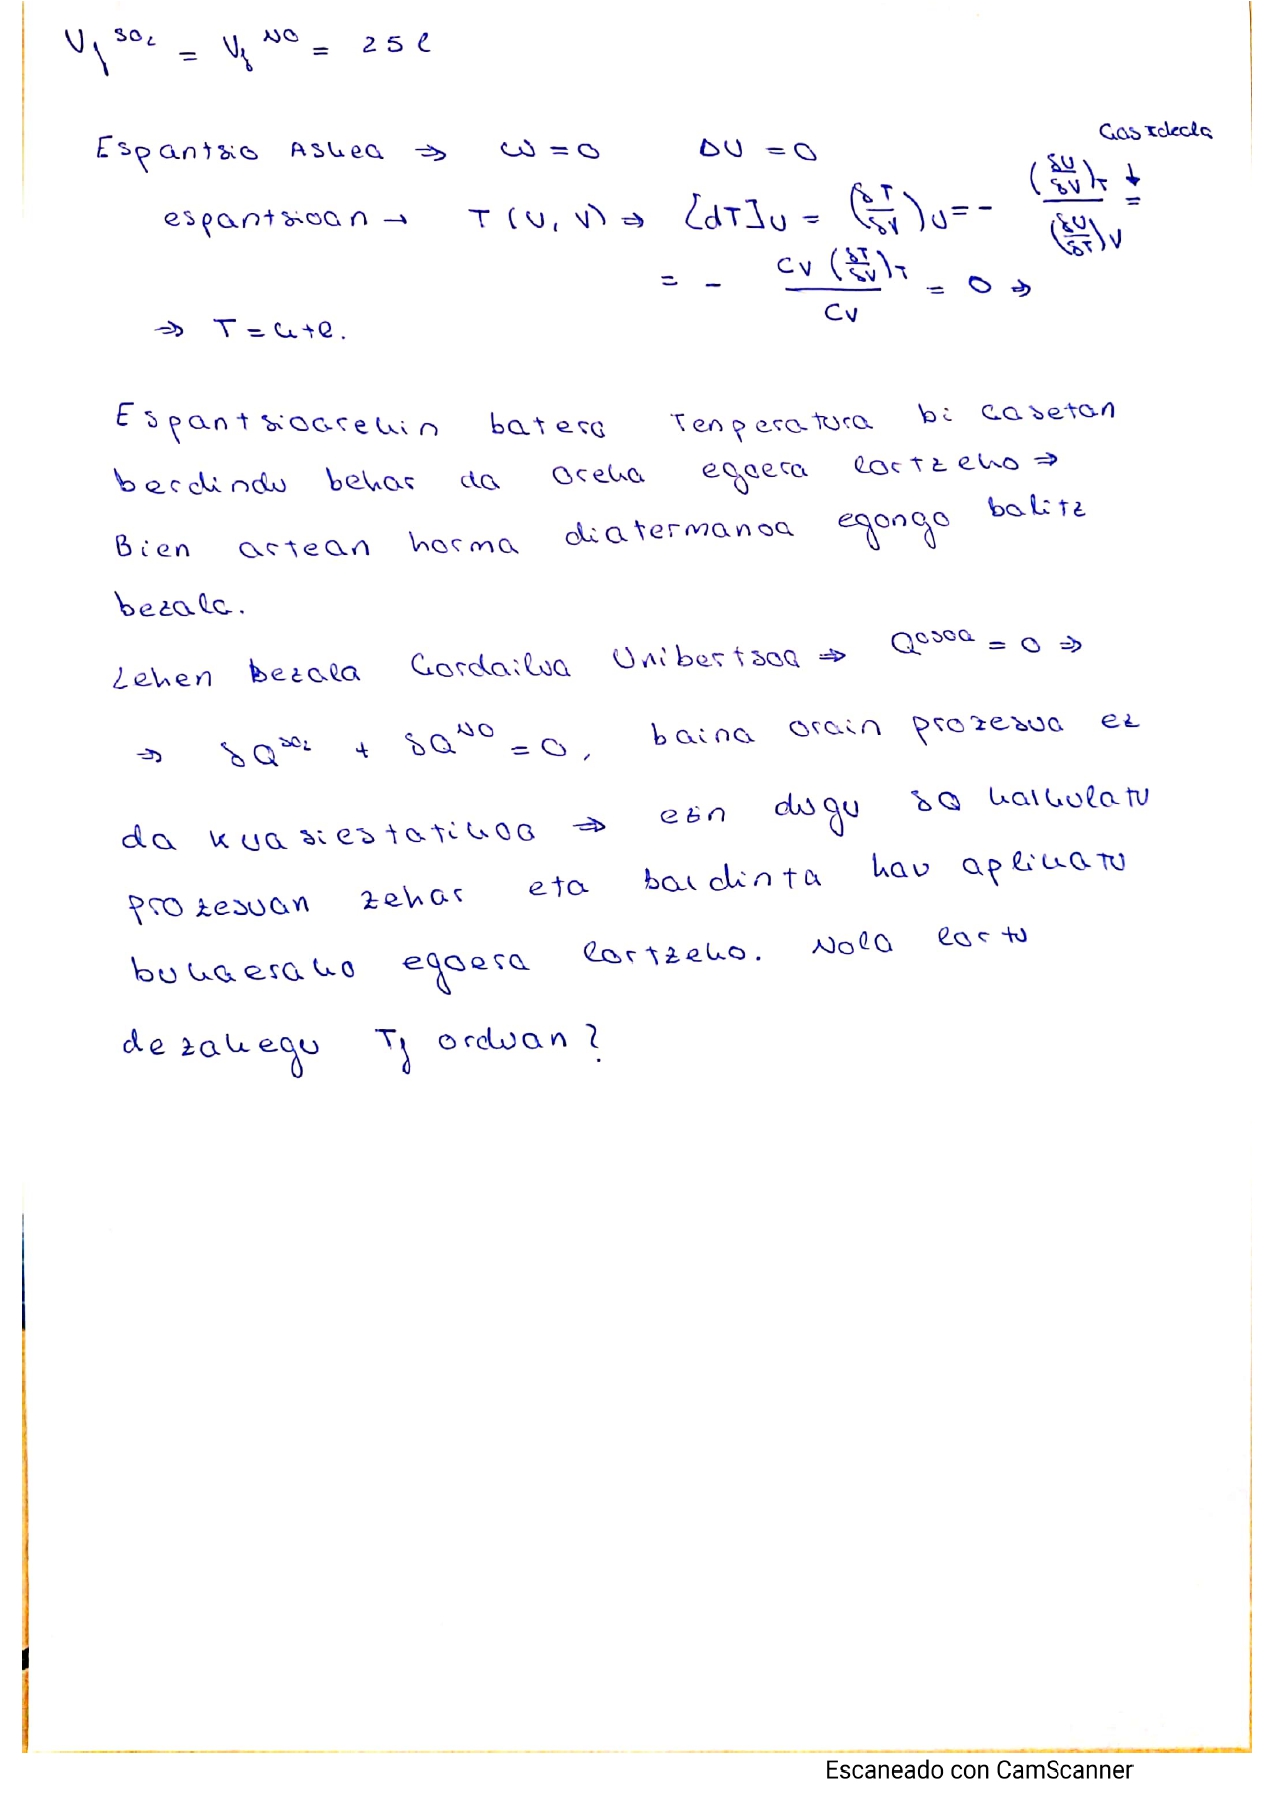 V_f^{SO2} = V_f^{NO} = 25 l
Espantsio Askea ⇒ W = 0 ΔU = 0
Gas Ideala
espantsioan → T(U, V) ⇒ [dT]_U = (δT/δV)_U = - (δU/δV)_T / (δU/δT)_V =
= - Cv (δT/δV)_T / Cv = 0 ⇒
⇒ T = kte.
Espantsioarekin batera Tenperatura bi gasetan
berdindu behar da oreka egoera lortzeko ⇒
Bien artean horma diatermanoa egongo balitz
bezala.
Lehen bezala Gordailua Unibertsoa ⇒ Q^{osoa} = 0 ⇒
⇒ δQ^{SO2} + δQ^{NO} = 0, baina orain prozesua ez
da kuasiestatikoa ⇒ ezin dugu δQ kalkulatu
prozesuan zehar eta baldintza hau aplikatu
bukaerako egoera lortzeko. Nola lortu
dezakegu T_f orduan?
Escaneado con CamScanner